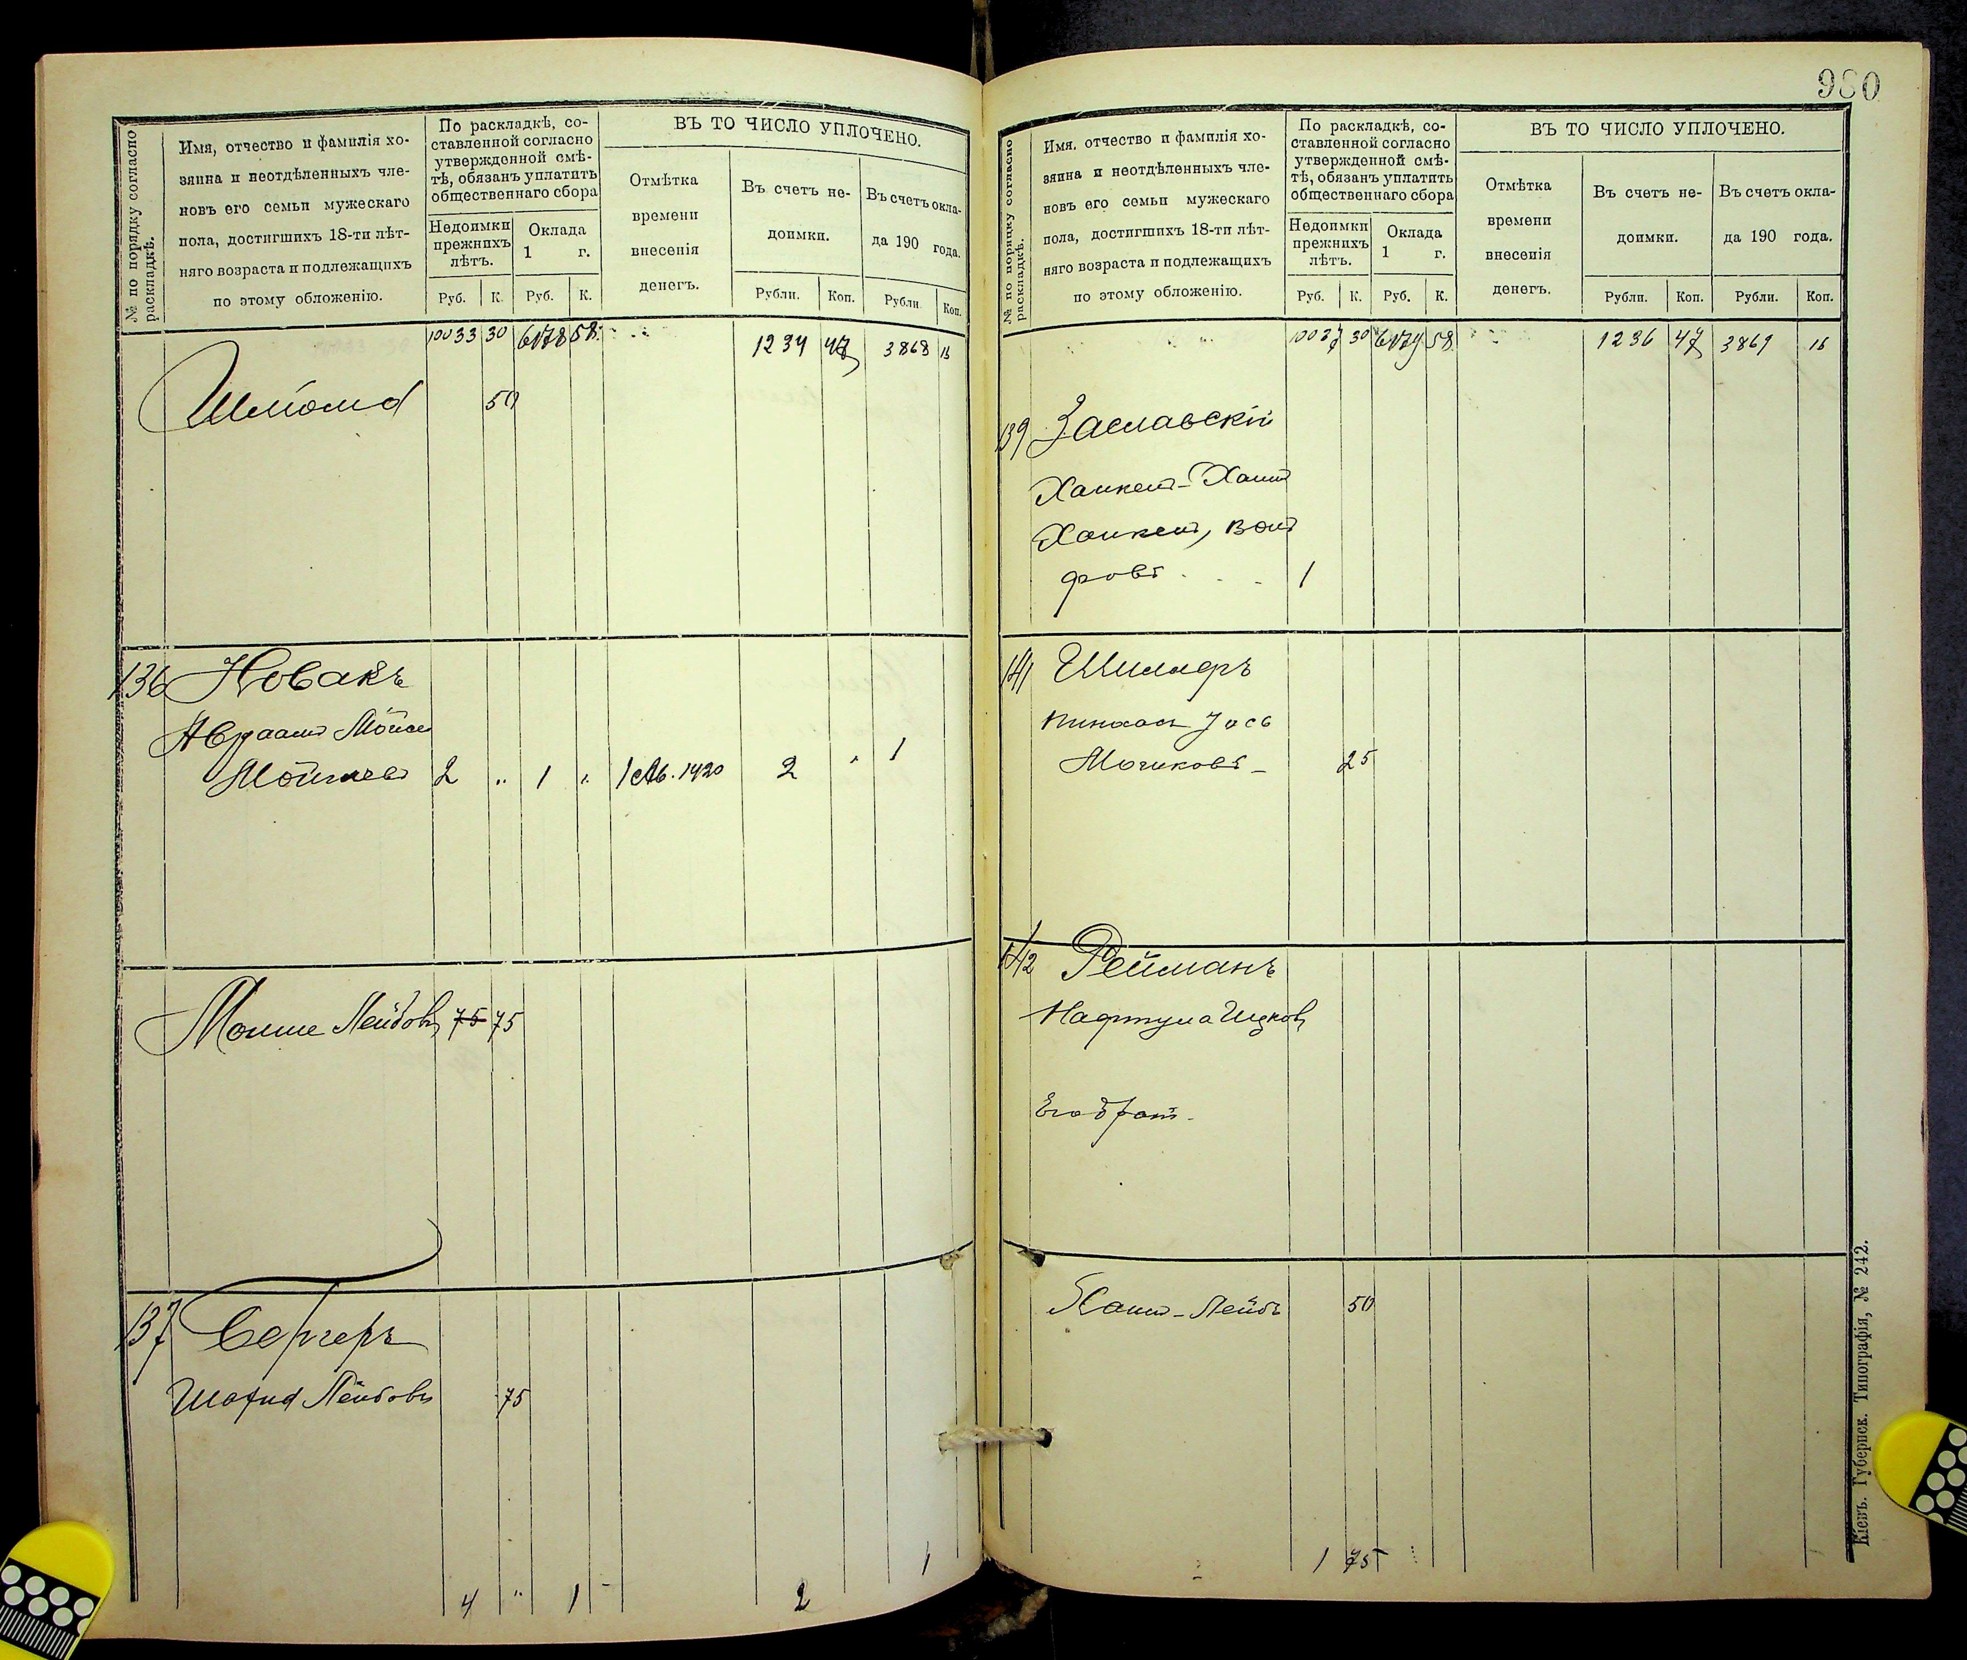 № по порядку согласно
раскладкѣ.
Имя, отчество и фамилія хо-
зяина и неотдѣленныхъ чле-
новъ его семьи мужескаго
пола, достигшихъ 18-ти лѣт-
няго возраста и подлежащихъ
по этому обложенію.
По раскладкѣ, со-
ставленной согласно
утвержденной смѣ-
тѣ, обязанъ уплатить
общественнаго сбора
Недоимки
прежнихъ
лѣтъ.
Оклада
1 г.
Руб. К. Руб. К.
ВЪ ТО ЧИСЛО УПЛОЧЕНО.
Отмѣтка
времени
внесенія
денегъ.
Въ счетъ не-
доимки.
Въ счетъ окла-
да 190 года.
Рубли. Коп. Рубли. Коп.
10033 30 6178 58 1234 47 3868 16
Шлiома 50
136 Новакъ
Авраамъ Мойсей
2 " 1 " 2 " 1
Мошие Лейбовъ 75 75
137 Бергеръ
Лейбовъ 75
4 " 1 - 2 1
980
№ по порядку согласно
раскладкѣ.
Имя, отчество и фамилія хо-
зяина и неотдѣленныхъ чле-
новъ его семьи мужескаго
пола, достигшихъ 18-ти лѣт-
няго возраста и подлежащихъ
по этому обложенію.
По раскладкѣ, со-
ставленной согласно
утвержденной смѣ-
тѣ, обязанъ уплатить
общественнаго сбора
Недоимки
прежнихъ
лѣтъ.
Оклада
1 г.
Руб. К. Руб. К.
ВЪ ТО ЧИСЛО УПЛОЧЕНО.
Отмѣтка
времени
внесенія
денегъ.
Въ счетъ не-
доимки.
Въ счетъ окла-
да 190 года.
Рубли. Коп. Рубли. Коп.
10037 30 6179 58 1236 47 3869 16
139 Заславскій
Ханкель-Хаимъ
Ханкель, Воль
фовъ 1
141 Шиллеръ
Пинхасъ Іось
25
142 Рейманъ
Нафтула Ицков
Его братъ
Хаимъ-Лейбъ 50
1 75
Кіевъ. Губернск. Типографія, № 242.